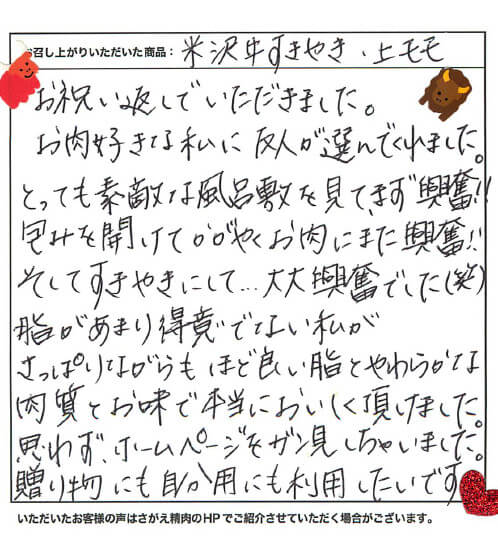 お召し上がりいただいた商品：米沢牛すきやき・上モモ
お祝い返しでいただきました。
お肉好きな私に友人が選んでくれました。
とっても素敵な風呂敷を見てまず興奮!!
包みを開けてかがやくお肉にまた興奮!!
そしてすきやきにして…大大興奮でした(笑)
脂があまり得意でない私が
さっぱりながらもほど良い脂とやわらかな
肉質とお味で本当においしく頂けました。
思わず、ホームページをガン見しちゃいました。
贈り物にも自分用にも利用したいです
いただいたお客様の声はさがえ精肉のHPでご紹介させていただく場合がございます。